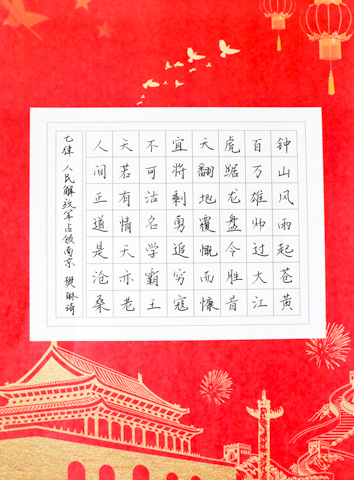 钟山风雨起苍黄
百万雄师过大江
虎踞龙盘今胜昔
天翻地覆慨而慷
宜将剩勇追穷寇
不可沽名学霸王
天若有情天亦老
人间正道是沧桑
七律 人民解放军占领南京 樊琳琦